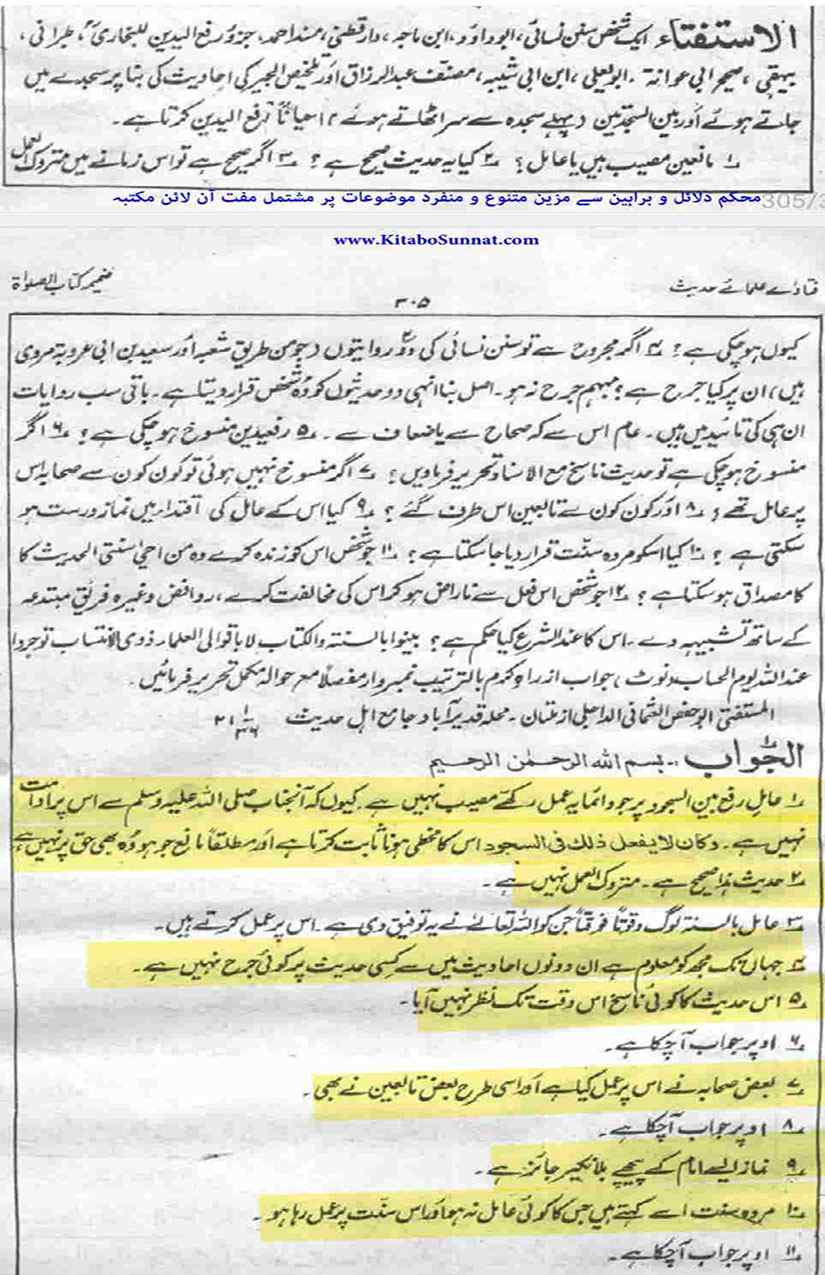 الاستفتاء ایک شخص سنن نسائی، ابوداؤد، ابن ماجہ، دارقطنی، مسند احمد، جزو رفع الیدین للبخاری، طبرانی،
بیہقی، صحیح ابی عوانہ، ابویعلیٰ، ابن ابی شیبہ، مصنف عبدالرزاق اور تلخیص الحبیر کی احادیث کی بنا پر سجدے میں
جاتے ہوئے اور بین السجدتین (پہلے سجدہ سے سر اٹھاتے ہوئے) احیاناً رفع الیدین کرتا ہے۔
۱؍ مانعین مصیب ہیں یا عامل؟ ۲؍ کیا یہ حدیث صحیح ہے؟ ۳؍ اگر صحیح ہے تو اس زمانے میں متروک العمل
305/3 محکم دلائل و براہین سے مزین متنوع و منفرد موضوعات پر مشتمل مفت آن لائن مکتبہ
www.KitaboSunnat.com
فتاوے علمائے حدیث
۳۰۵
ضمیمہ کتاب الصلوٰۃ
کیوں ہو چکی ہے؟ ۴؍ اگر مجروح ہے تو سنن نسائی کی دو روایتوں (جو من طریق شعبہ اور سعید بن ابی عروبہ مروی
ہیں) ان پر کیا جرح ہے؟ مبہم جرح نہ ہو۔ اصل بنا انہی دو حدیثوں کو وہ شخص قرار دیتا ہے۔ باقی سب روایات
ان ہی کی تائید میں ہیں۔ عام اس سے کہ صحاح سے یا ضعاف سے۔ ۵؍ رفعیدین منسوخ ہو چکی ہے؟ ۶؍ اگر
منسوخ ہو چکی ہے تو حدیث ناسخ مع الاسناد تحریر فرماویں؟ ۷؍ اگر منسوخ نہیں ہوئی تو کون کون سے صحابہ اس
پر عامل تھے؟ ۸؍ اور کون کون سے تابعین اس طرف گئے؟ ۹؍ کیا اس کے عامل کی اقتدا میں نماز درست ہو
سکتی ہے؟ ۱۰؍ کیا اسکو مردہ سنت قرار دیا جا سکتا ہے؟ ۱۱؍ جو شخص اس کو زندہ کرے وہ من احیٰی سنتی الحدیث کا
کا مصداق ہو سکتا ہے؟ ۱۲؍ جو شخص اس فعل سے ناراض ہو کر اس کی مخالفت کرے، روافض وغیرہ فریق مبتدعہ
کے ساتھ تشبیہ دے۔ اس کا عند الشرع کیا حکم ہے؟ بینوا بالسنۃ والکتاب لا باقوالی العلماء ذوی الانتساب توجروا
عند اللہ یوم الحساب (نوٹ) جواب از راہ کرم بالترتیب نمبروار مفصلاً مع حوالہ مکمل تحریر فرمائیں۔
المستفتی ابوحفص العثمانی الداجلی از ملتان۔ محلہ قدیر آباد جامع اہل حدیث
الجواب :۔ بسم اللہ الرحمٰن الرحیم
۱؍ عامل رفع بین السجود پر جو دائما یہ عمل رکھے مصیب نہیں ہے۔ کیوں کہ آنجناب صلی اللہ علیہ وسلم سے اس پر مداومت
نہیں ہے۔ وکان لا یفعل ذلک فی السجود اس کا مخطی ہونا ثابت کرتا ہے اور مطلقاً مانع جو ہو وہ بھی حق پر نہیں ہے
۲؍ حدیث ہذا صحیح ہے۔ متروک العمل نہیں ہے۔
۳؍ عامل بالسنۃ لوگ وقتاً فوقتاً جن کو اللہ تعالےٰ نے یہ توفیق دی ہے۔ اس پر عمل کرتے ہیں۔
۴؍ جہاں تک مجھ کو معلوم ہے ان دونوں احادیث میں سے کسی حدیث پر کوئی جرح نہیں ہے۔
۵؍ اس حدیث کا کوئی ناسخ اس وقت تک نظر نہیں آیا۔
۶؍ اوپر جواب آ چکا ہے۔
۷؍ بعض صحابہ نے اس پر عمل کیا ہے اور اسی طرح بعض تابعین نے بھی۔
۸؍ اوپر جواب آ چکا ہے۔
۹؍ نماز ایسے امام کے پیچھے بلا نکیر جائز ہے۔
۱۰؍ مردہ سنت اسے کہتے ہیں جس کا کوئی عامل نہ ہو اور اس سنت پر عمل رہا ہو۔
۱۱؍ اوپر جواب آ چکا ہے۔